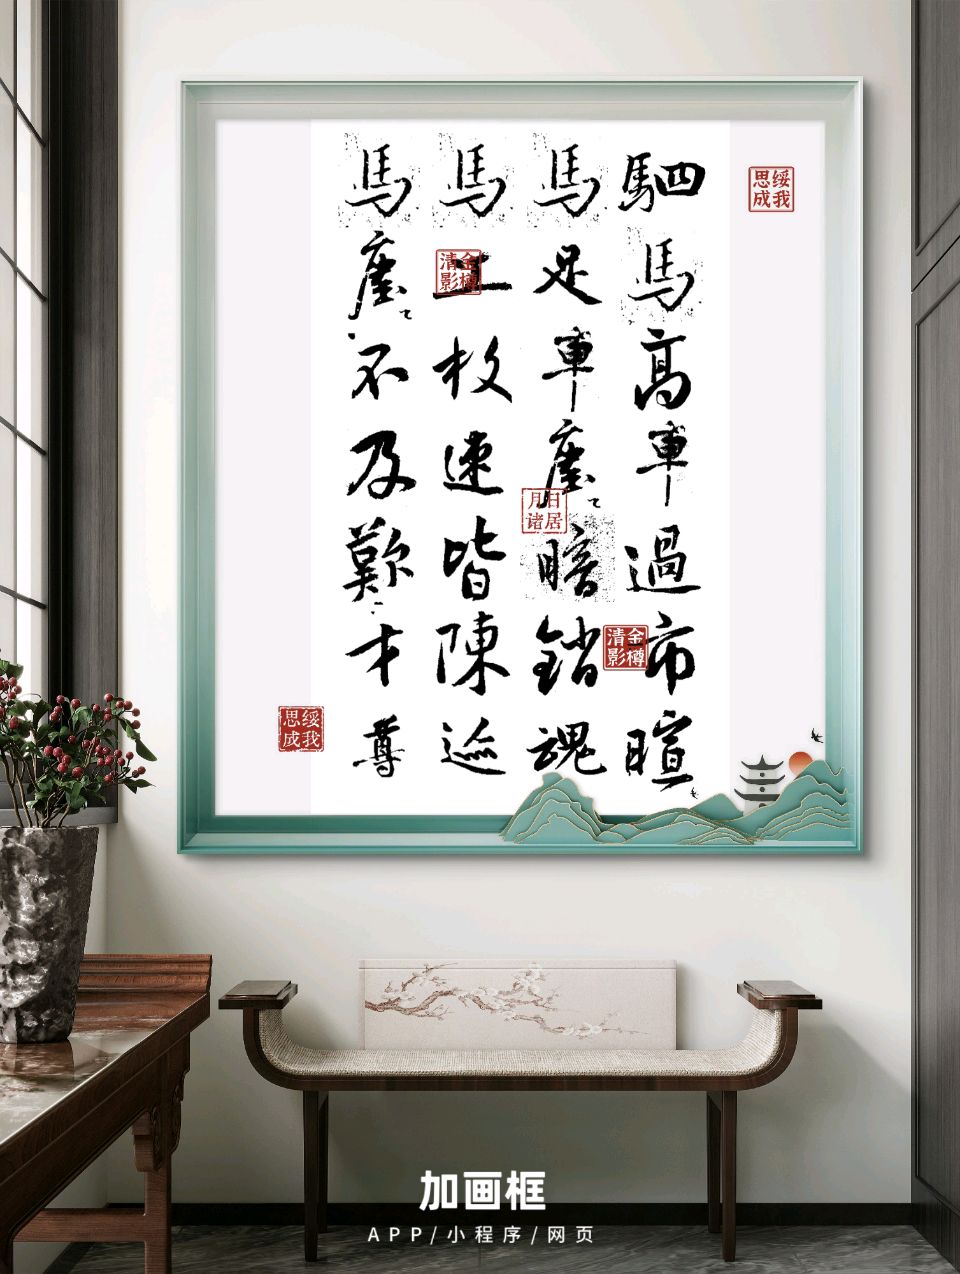 駟馬高車過市暄
馬足車塵暗銷魂
馬上枚速皆陳迹
馬塵不及歎才尊
绥我思成
金樽清影
日居月诸
金樽清影
绥我思成
加画框
APP/小程序/网页